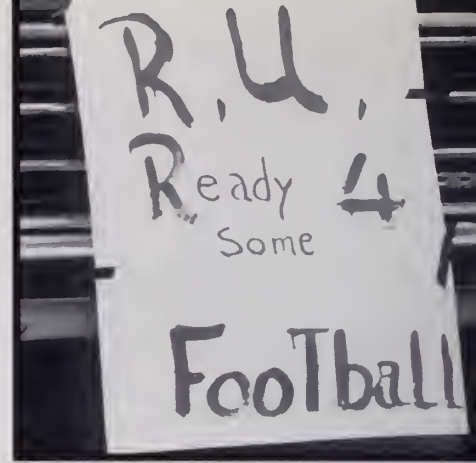 R.U.
Ready 4
Some
FooTball